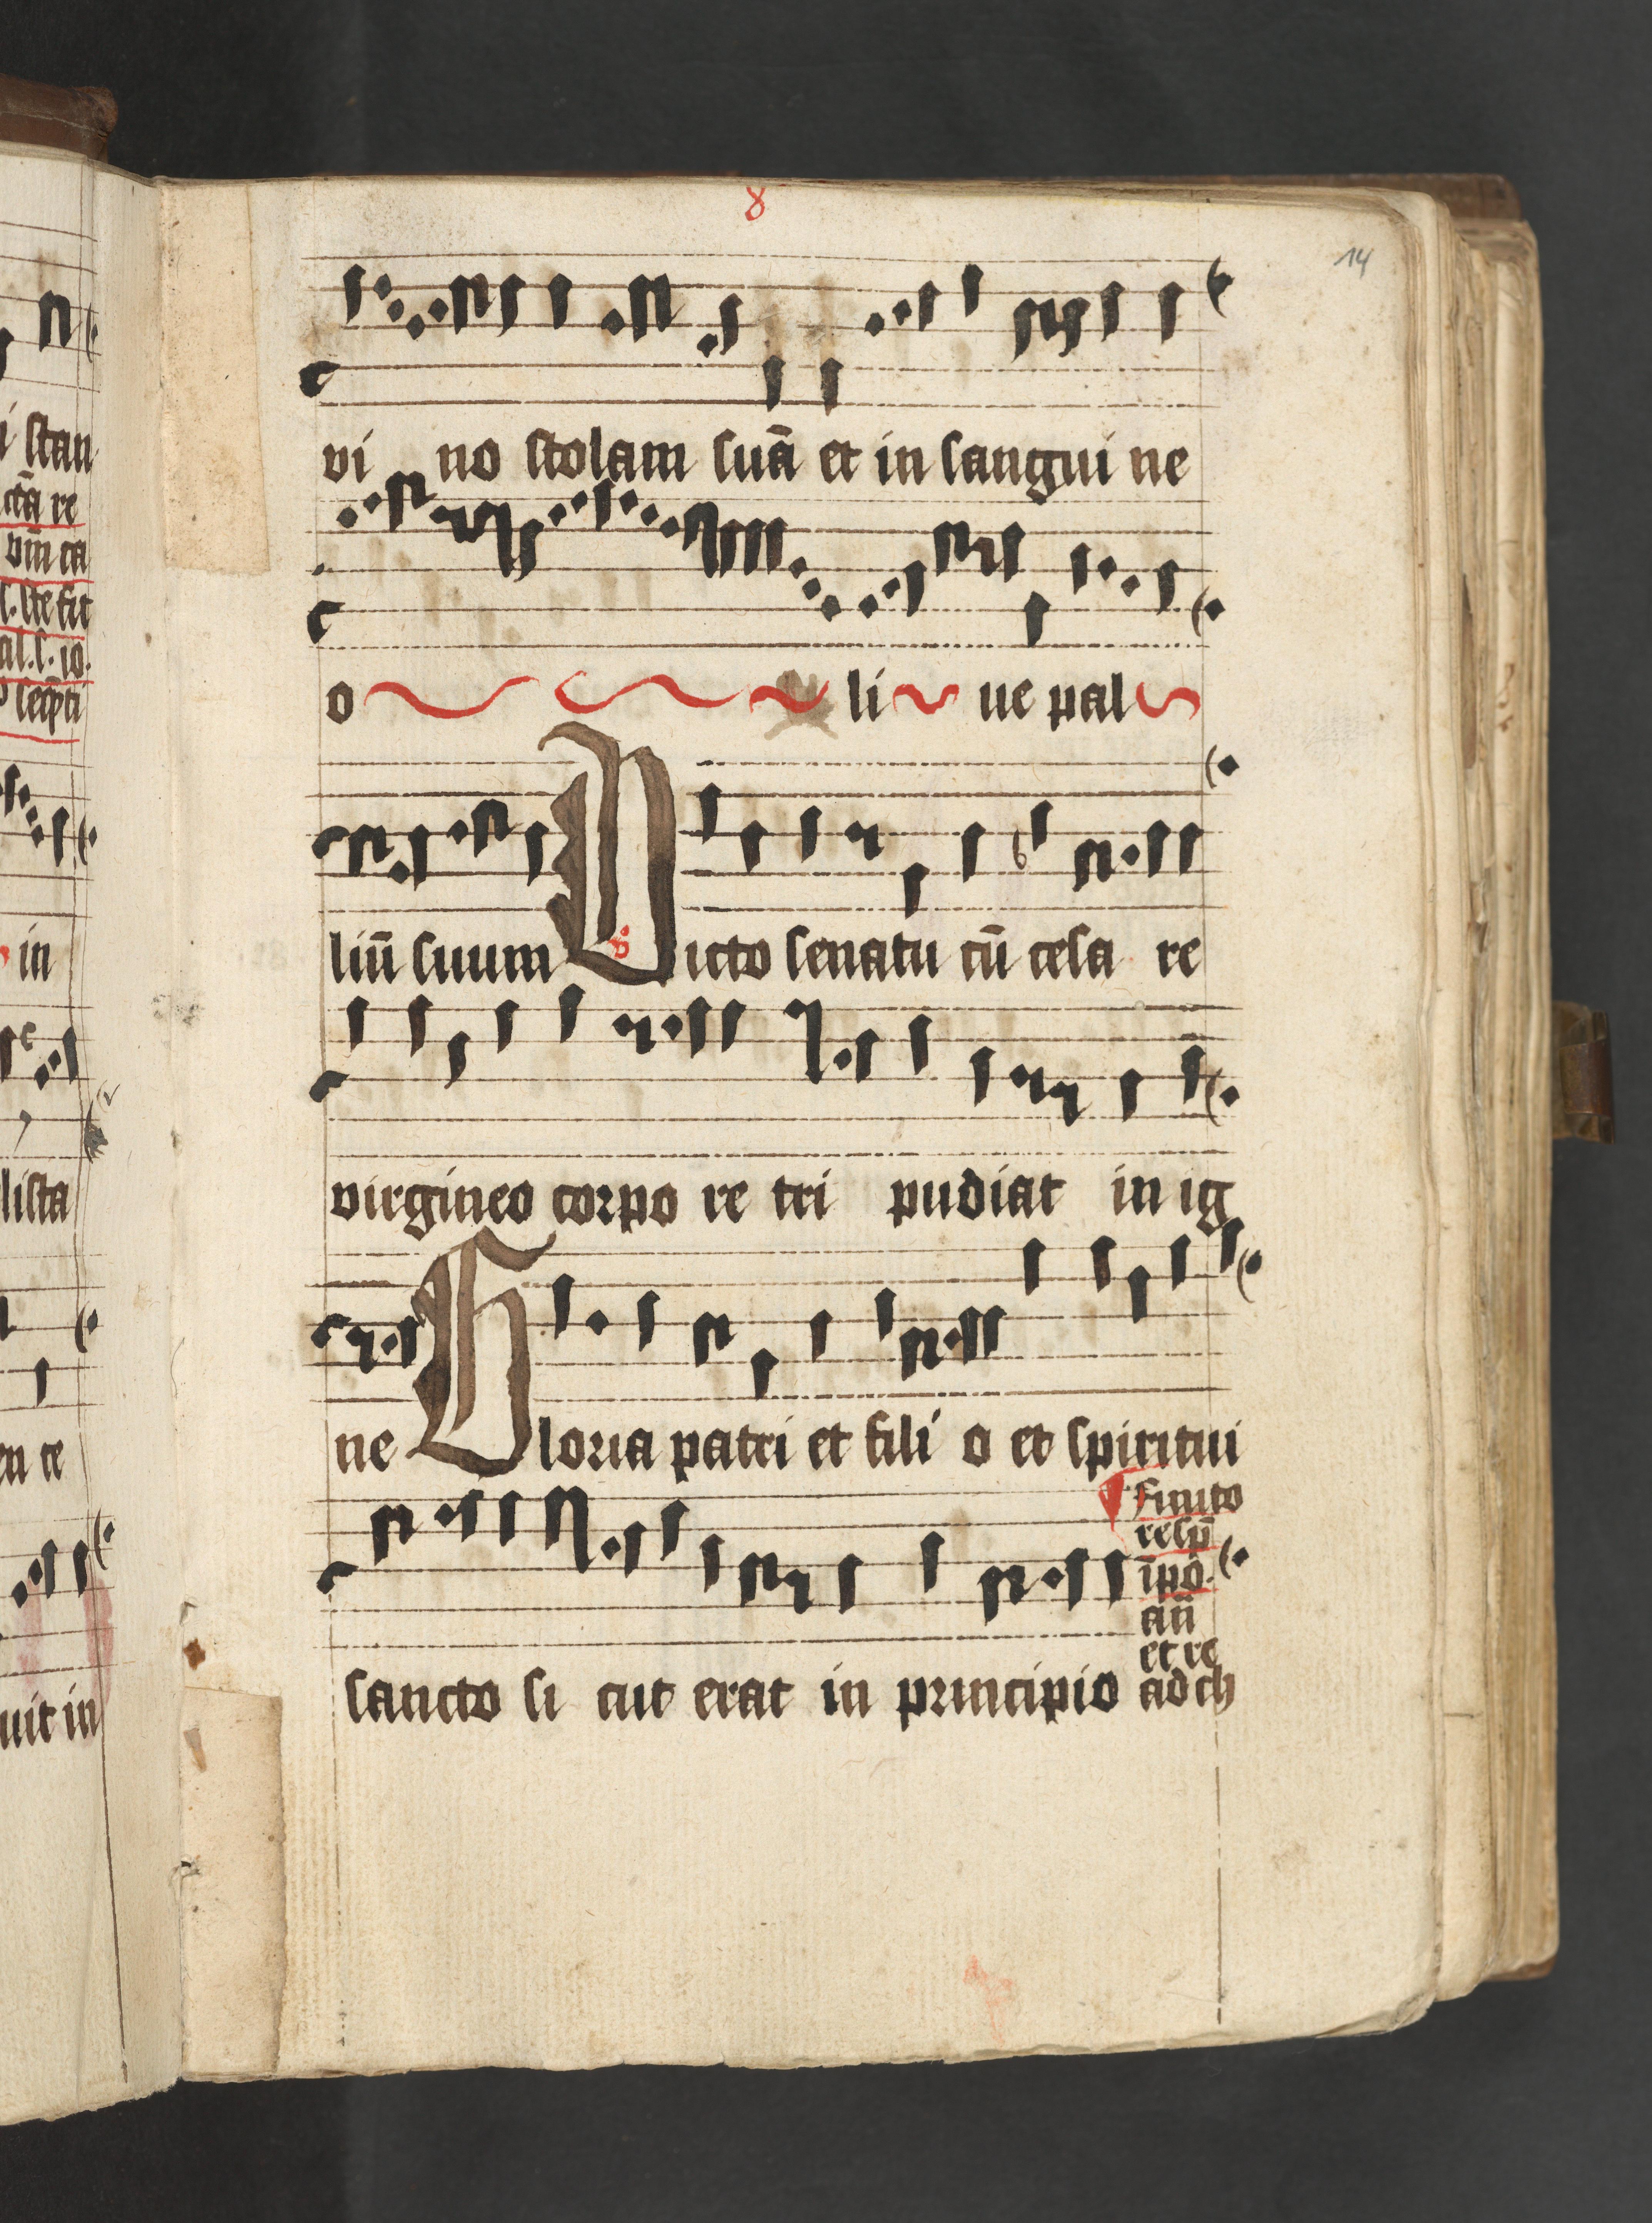 8
14
vi no stolam suā et in sangui ne
o li ue pal
liū suum Victo senatu cū cesa re
virgineo corpo re tri pudiat in ig
ne Gloria patri et fili o et spiritui
finito
resp̄
ip̄o.
an̄
et re
sancto si cut erat in principio ad ch
i stan
ctā re
in
lista
uit in